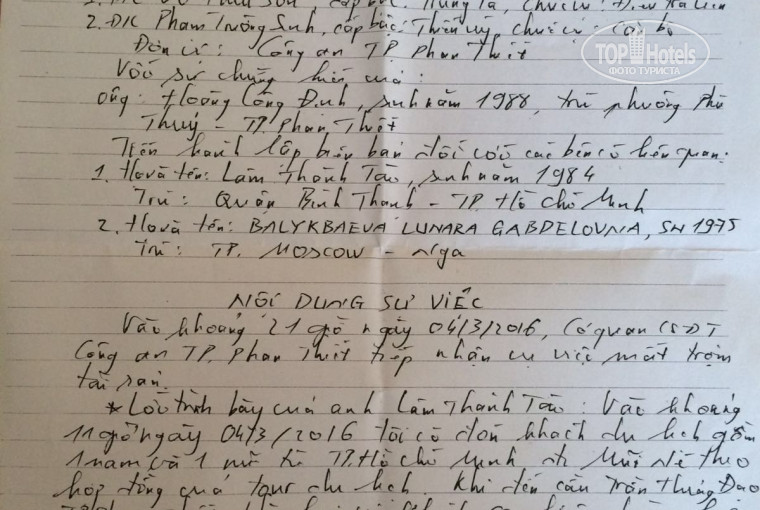 2. ĐK Phạm Trường Sinh, cấp bậc: Thiếu úy, chức vụ: Cán bộ
Đơn vị: Công an TP. Phan Thiết
Với sự chứng kiến của:
Ông: Hoàng Công Định, sinh năm 1988, trú phường Phú
Thủy - TP. Phan Thiết
Tiến hành lập biên bản đối với các bên có liên quan:
1. Họ và tên: Lâm Thành Tâo, sinh năm 1984
Trú: Quận Bình Thạnh - TP. Hồ Chí Minh
2. Họ và tên: BALYKBAEVA LUNARA GABDELOVNA, SN 1975
Trú: TP. MOSCOW - Nga
NỘI DUNG SỰ VIỆC
Vào khoảng 21 giờ ngày 04/3/2016, Cơ quan CSĐT
Công an TP. Phan Thiết tiếp nhận vụ việc mất trộm
tài sản.
* Lời trình bày của anh Lâm Thành Tâo: Vào khoảng
11 giờ ngày 04/3/2016 tôi có đón khách du lịch gồm
1 nam và 1 nữ từ TP. Hồ Chí Minh đi Mũi Né theo
hợp đồng của tour du lịch. Khi đến cầu Trần Hưng Đạo
TopHotels
ФОТО ТУРИСТА